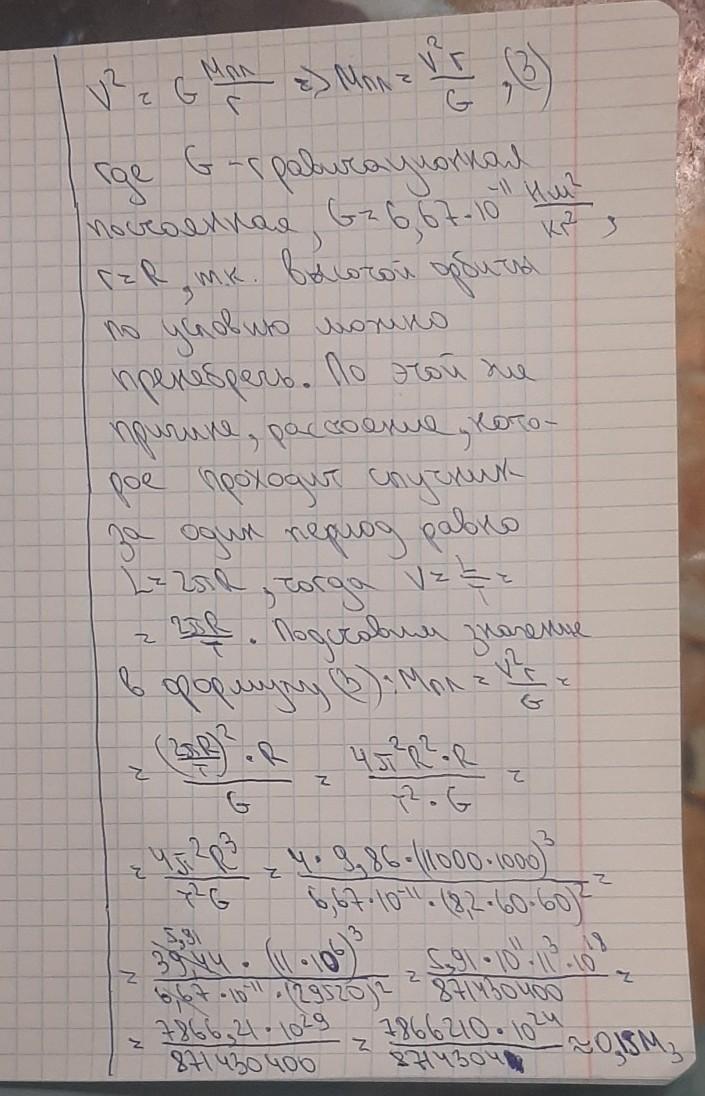 V² = G Mпл/r => Mпл = V²r/G , (3)
где G - гравитационная
постоянная, G = 6,67·10⁻¹¹ Нм²/кг² ,
r = R , т.к. высотой орбиты
по условию можно
пренебречь. По этой же
причине, расстояние, кото-
рое проходит спутник
за один период равно
L = 2πR , тогда V = L/T =
= 2πR/T . Подставим значение
в формулу (3): Mпл = V²r/G =
= (2πR/T)²·R/G = 4π²R²·R/T²·G =
= 4π²R³/T²G = 4·9,86·(11000·1000)³/6,67·10⁻¹¹·(8,2·60·60)² =
5,91
= 39,44·(11·10⁶)³/6,67·10⁻¹¹·(29520)² = 5,91·10¹¹·11³·10¹⁸/871430400 =
= 7866,21·10²⁹/871430400 = 7866210·10²⁴/8714304 ≈ 0,15M₃